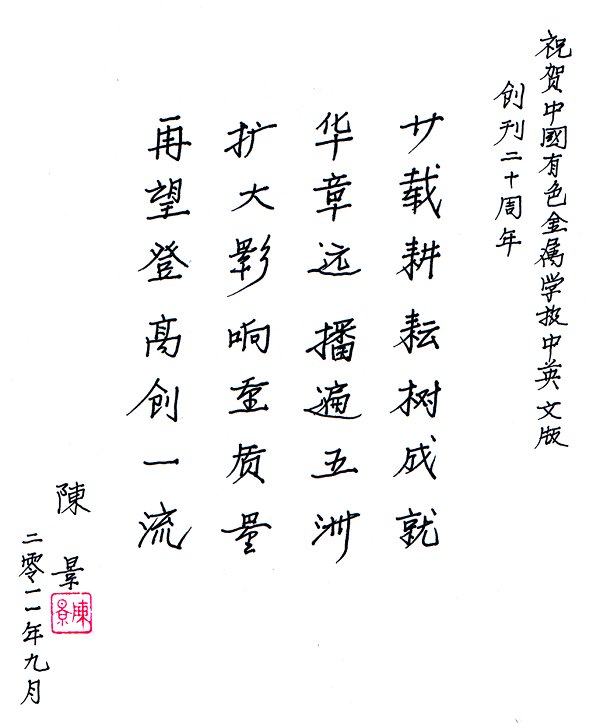 祝贺中國有色金属学报中英文版
创刊二十周年
廿载耕耘树成就
华章远播遍五洲
扩大影响重质量
再望登高创一流
陳景
陳景
二零一一年九月